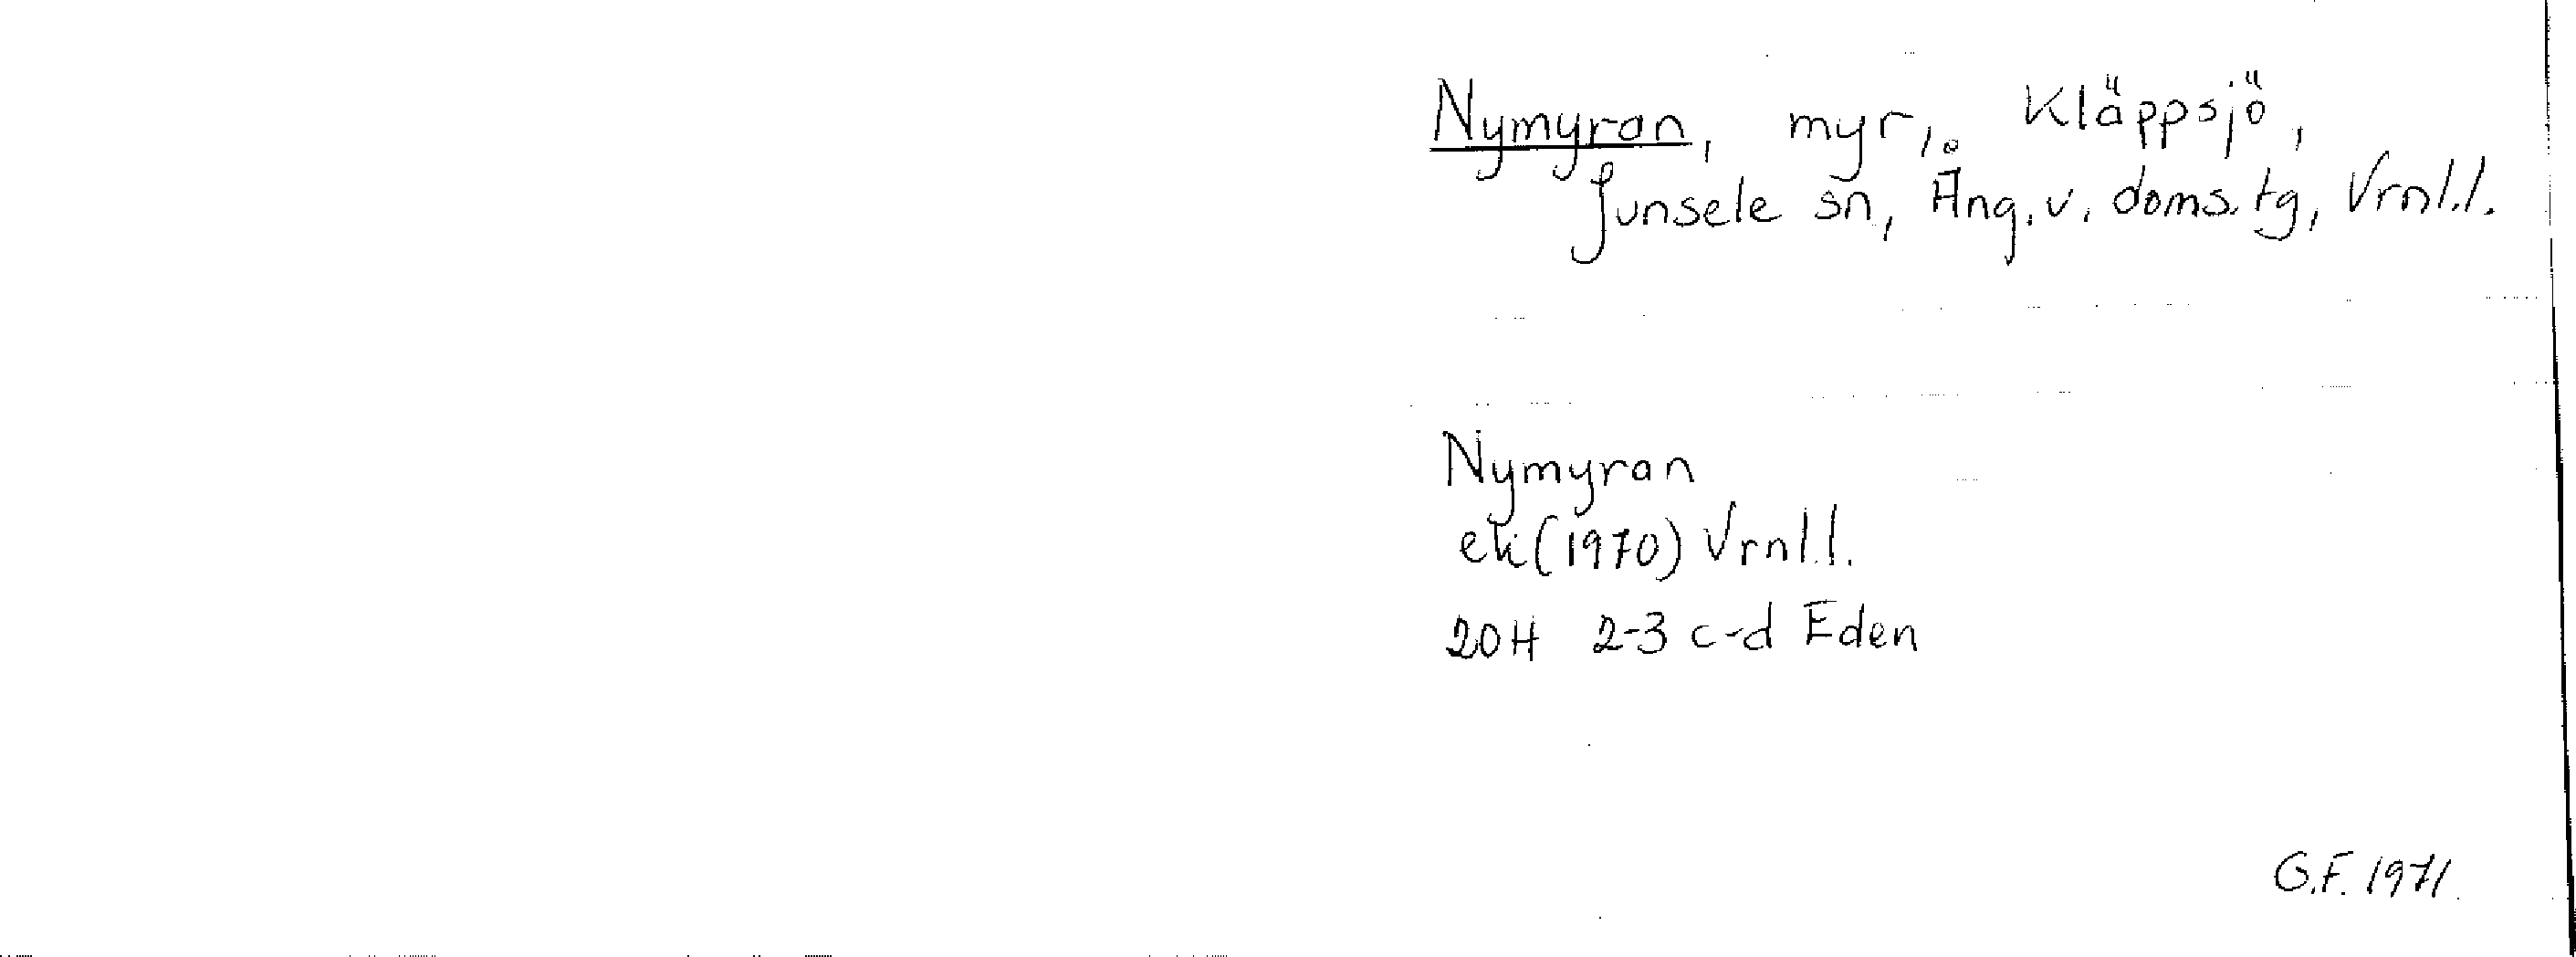 Nymyran, myr, Kläppsjö,
Junsele sn, Ång. v. doms. tg, Vrnl.l.
Nymyran
ek (1970) Vrnl.l.
20H 2-3 c-d Eden
G.F. 1971.